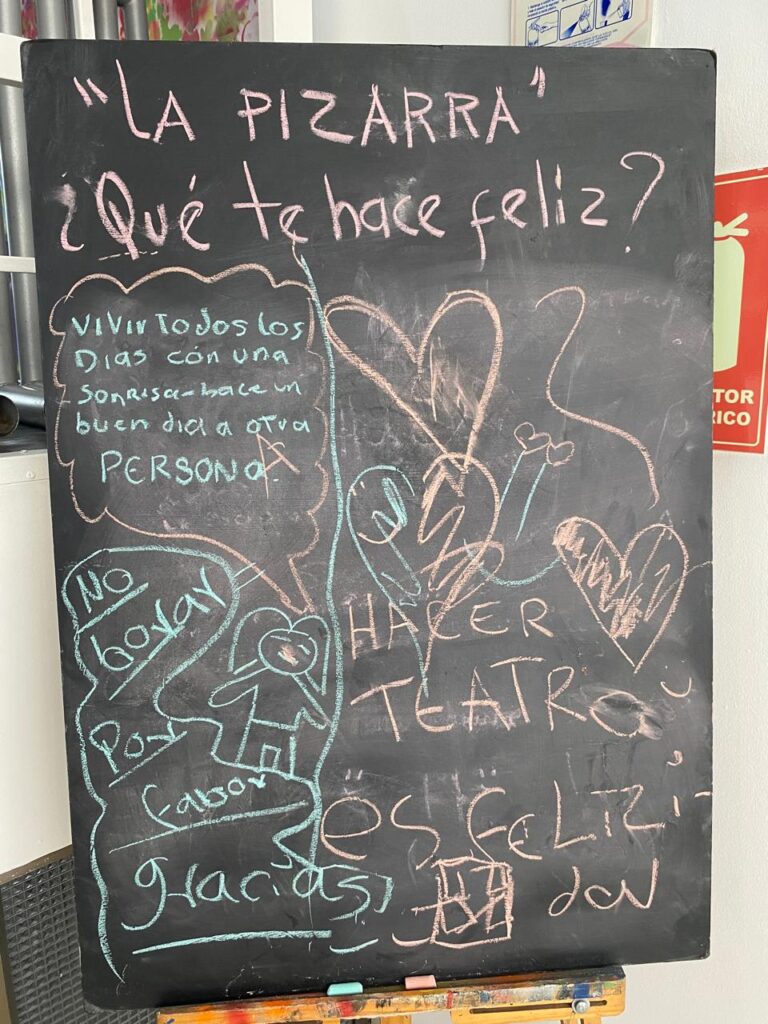 "LA PIZARRA"
¿Qué te hace feliz?
VIVIR TODOS LOS
DIAS CON UNA
SONRISA-hace un
buen dia a otra
PERSONA
No
borrar
Por
fabor
gracias
HACER
TEATRO
ES FELIZI-
DAD
TOR
RICO